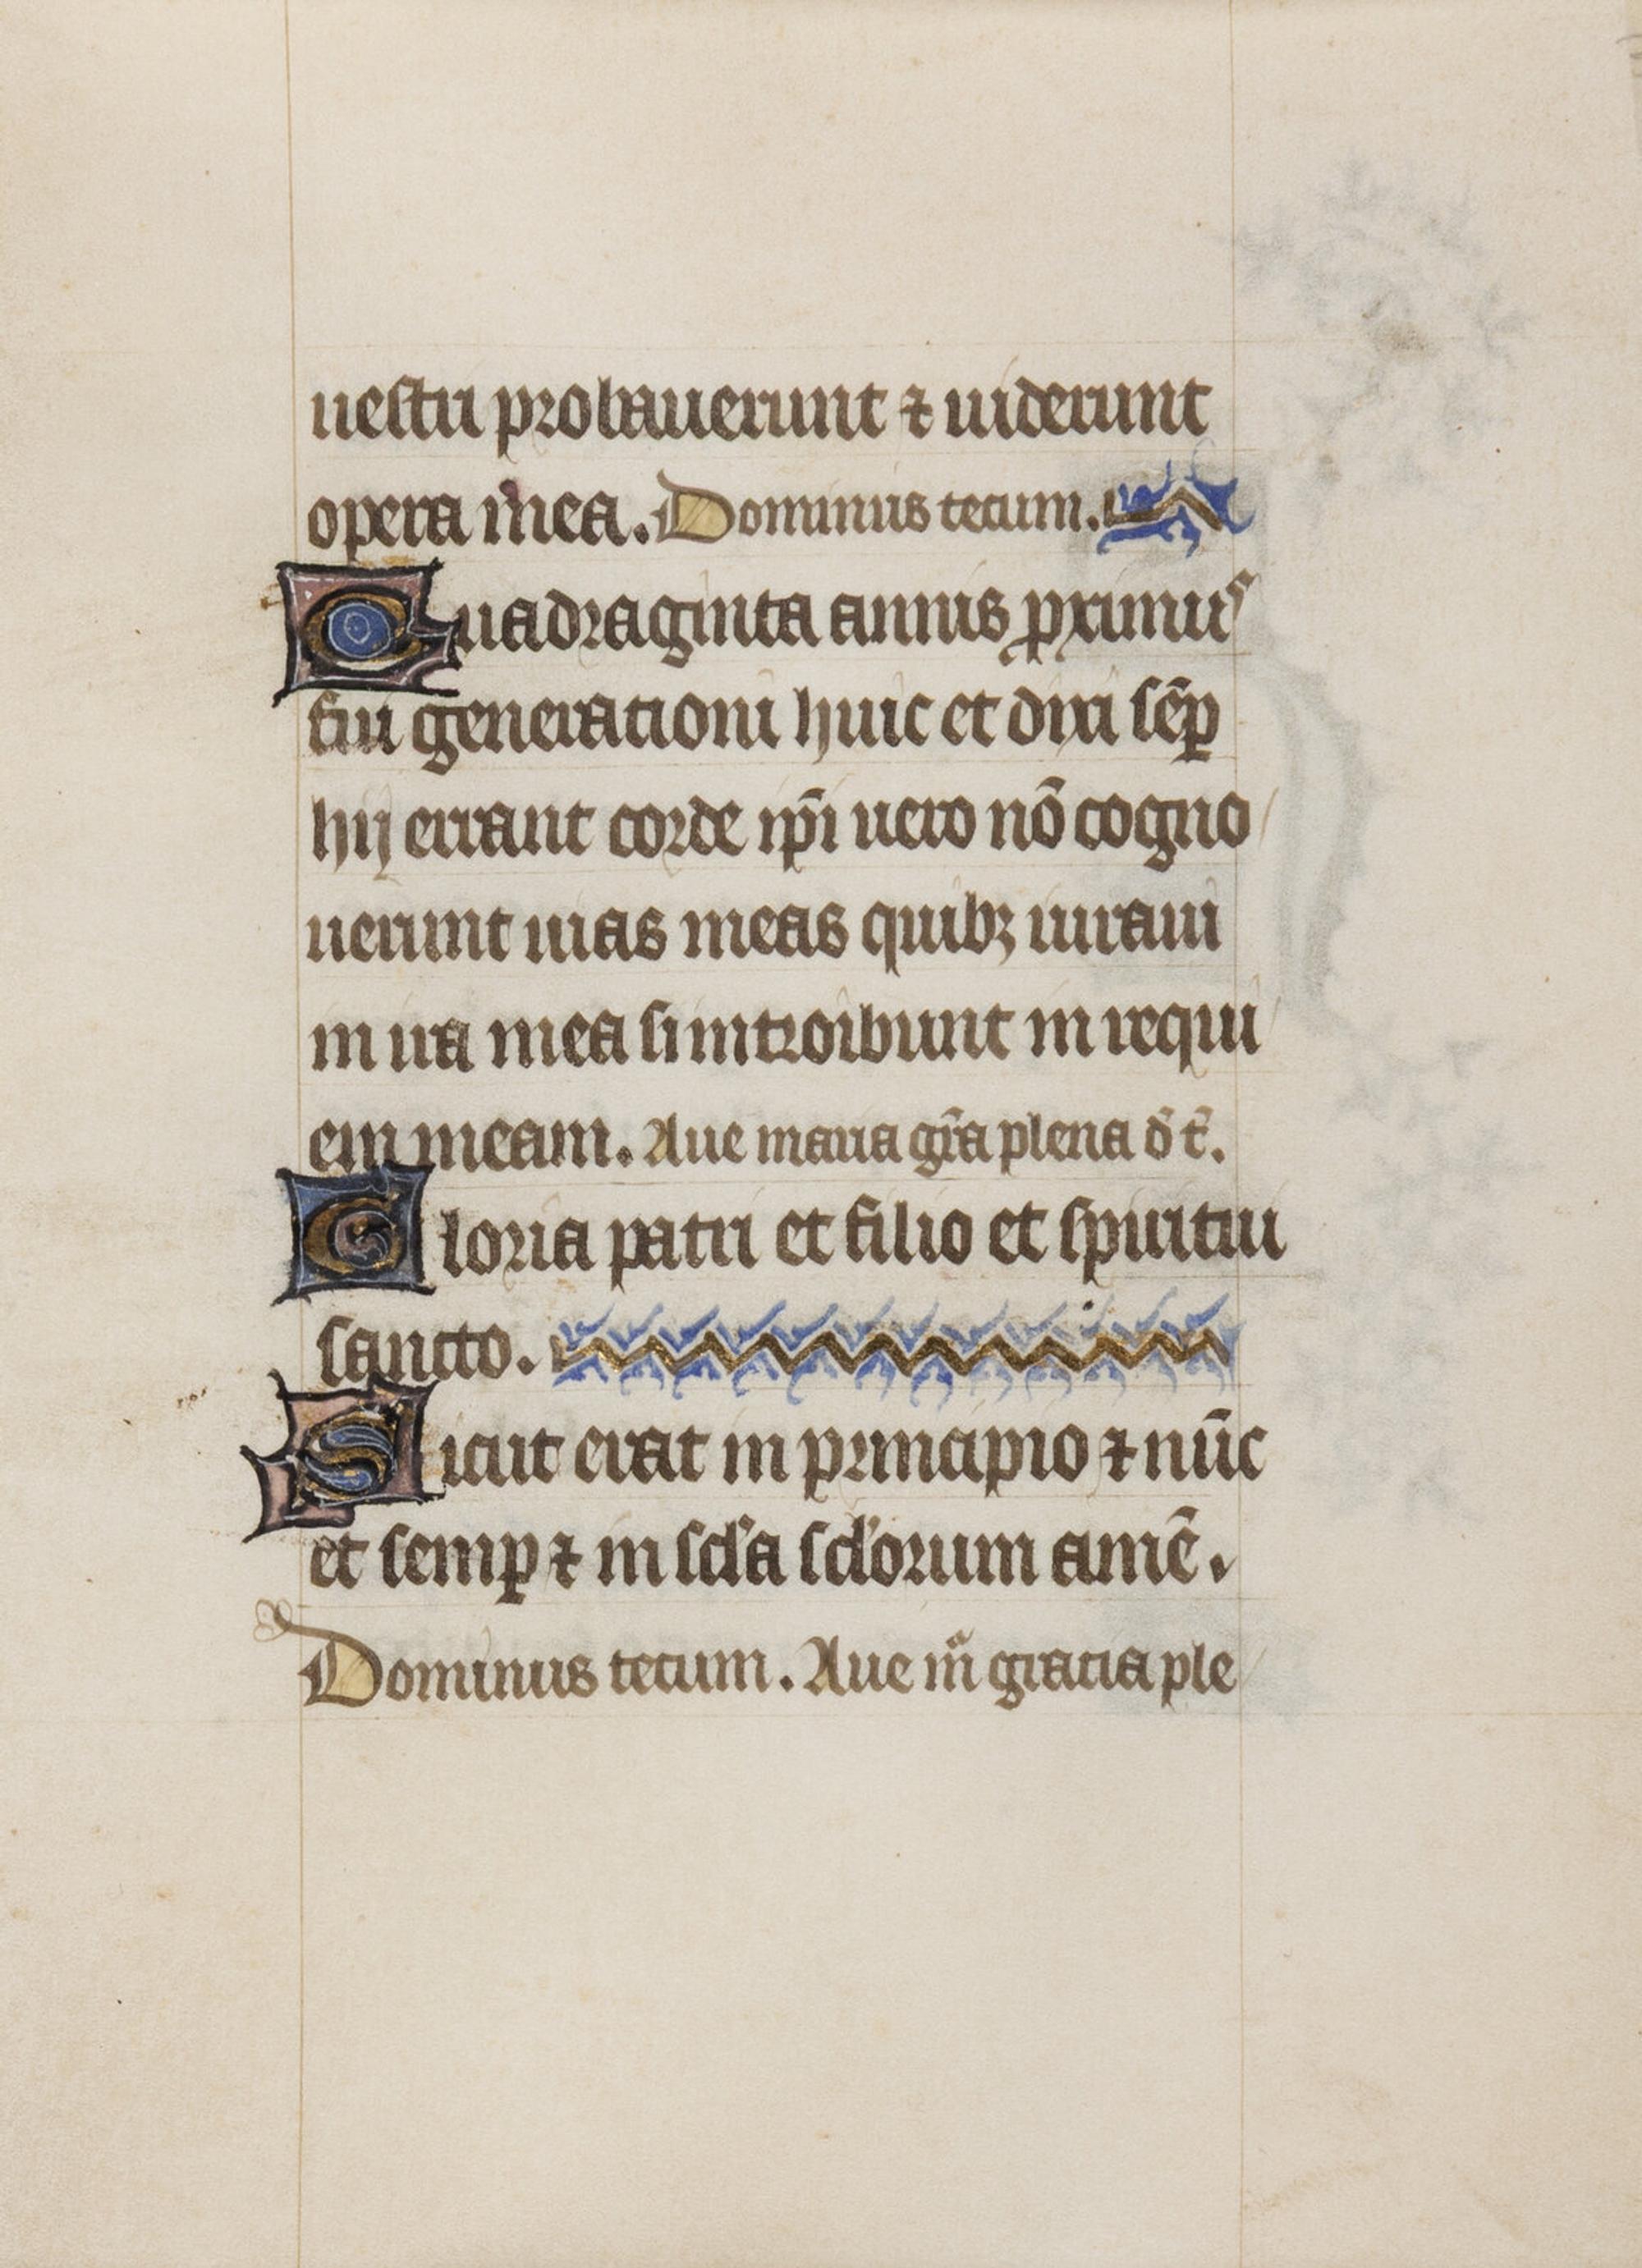 uestri probauerunt ⁊ uiderunt
opera mea. Dominus tecum.
Quadraginta annis ꝓximus
fui generationi huic et dixi sēꝑ
hij errant corde ip̄i uero nō cogno
uerunt uias meas quibꝫ iuraui
in ira mea si introibunt in requi
em meam. Aue maria gr̄a plena d̄ t̄.
Gloria patri et filio et spiritui
sancto.
Sicut erat in principio ⁊ nūc
et semꝑ ⁊ in scl'a scl'orum amē.
Dominus tecum. Aue m̄ gratia ple